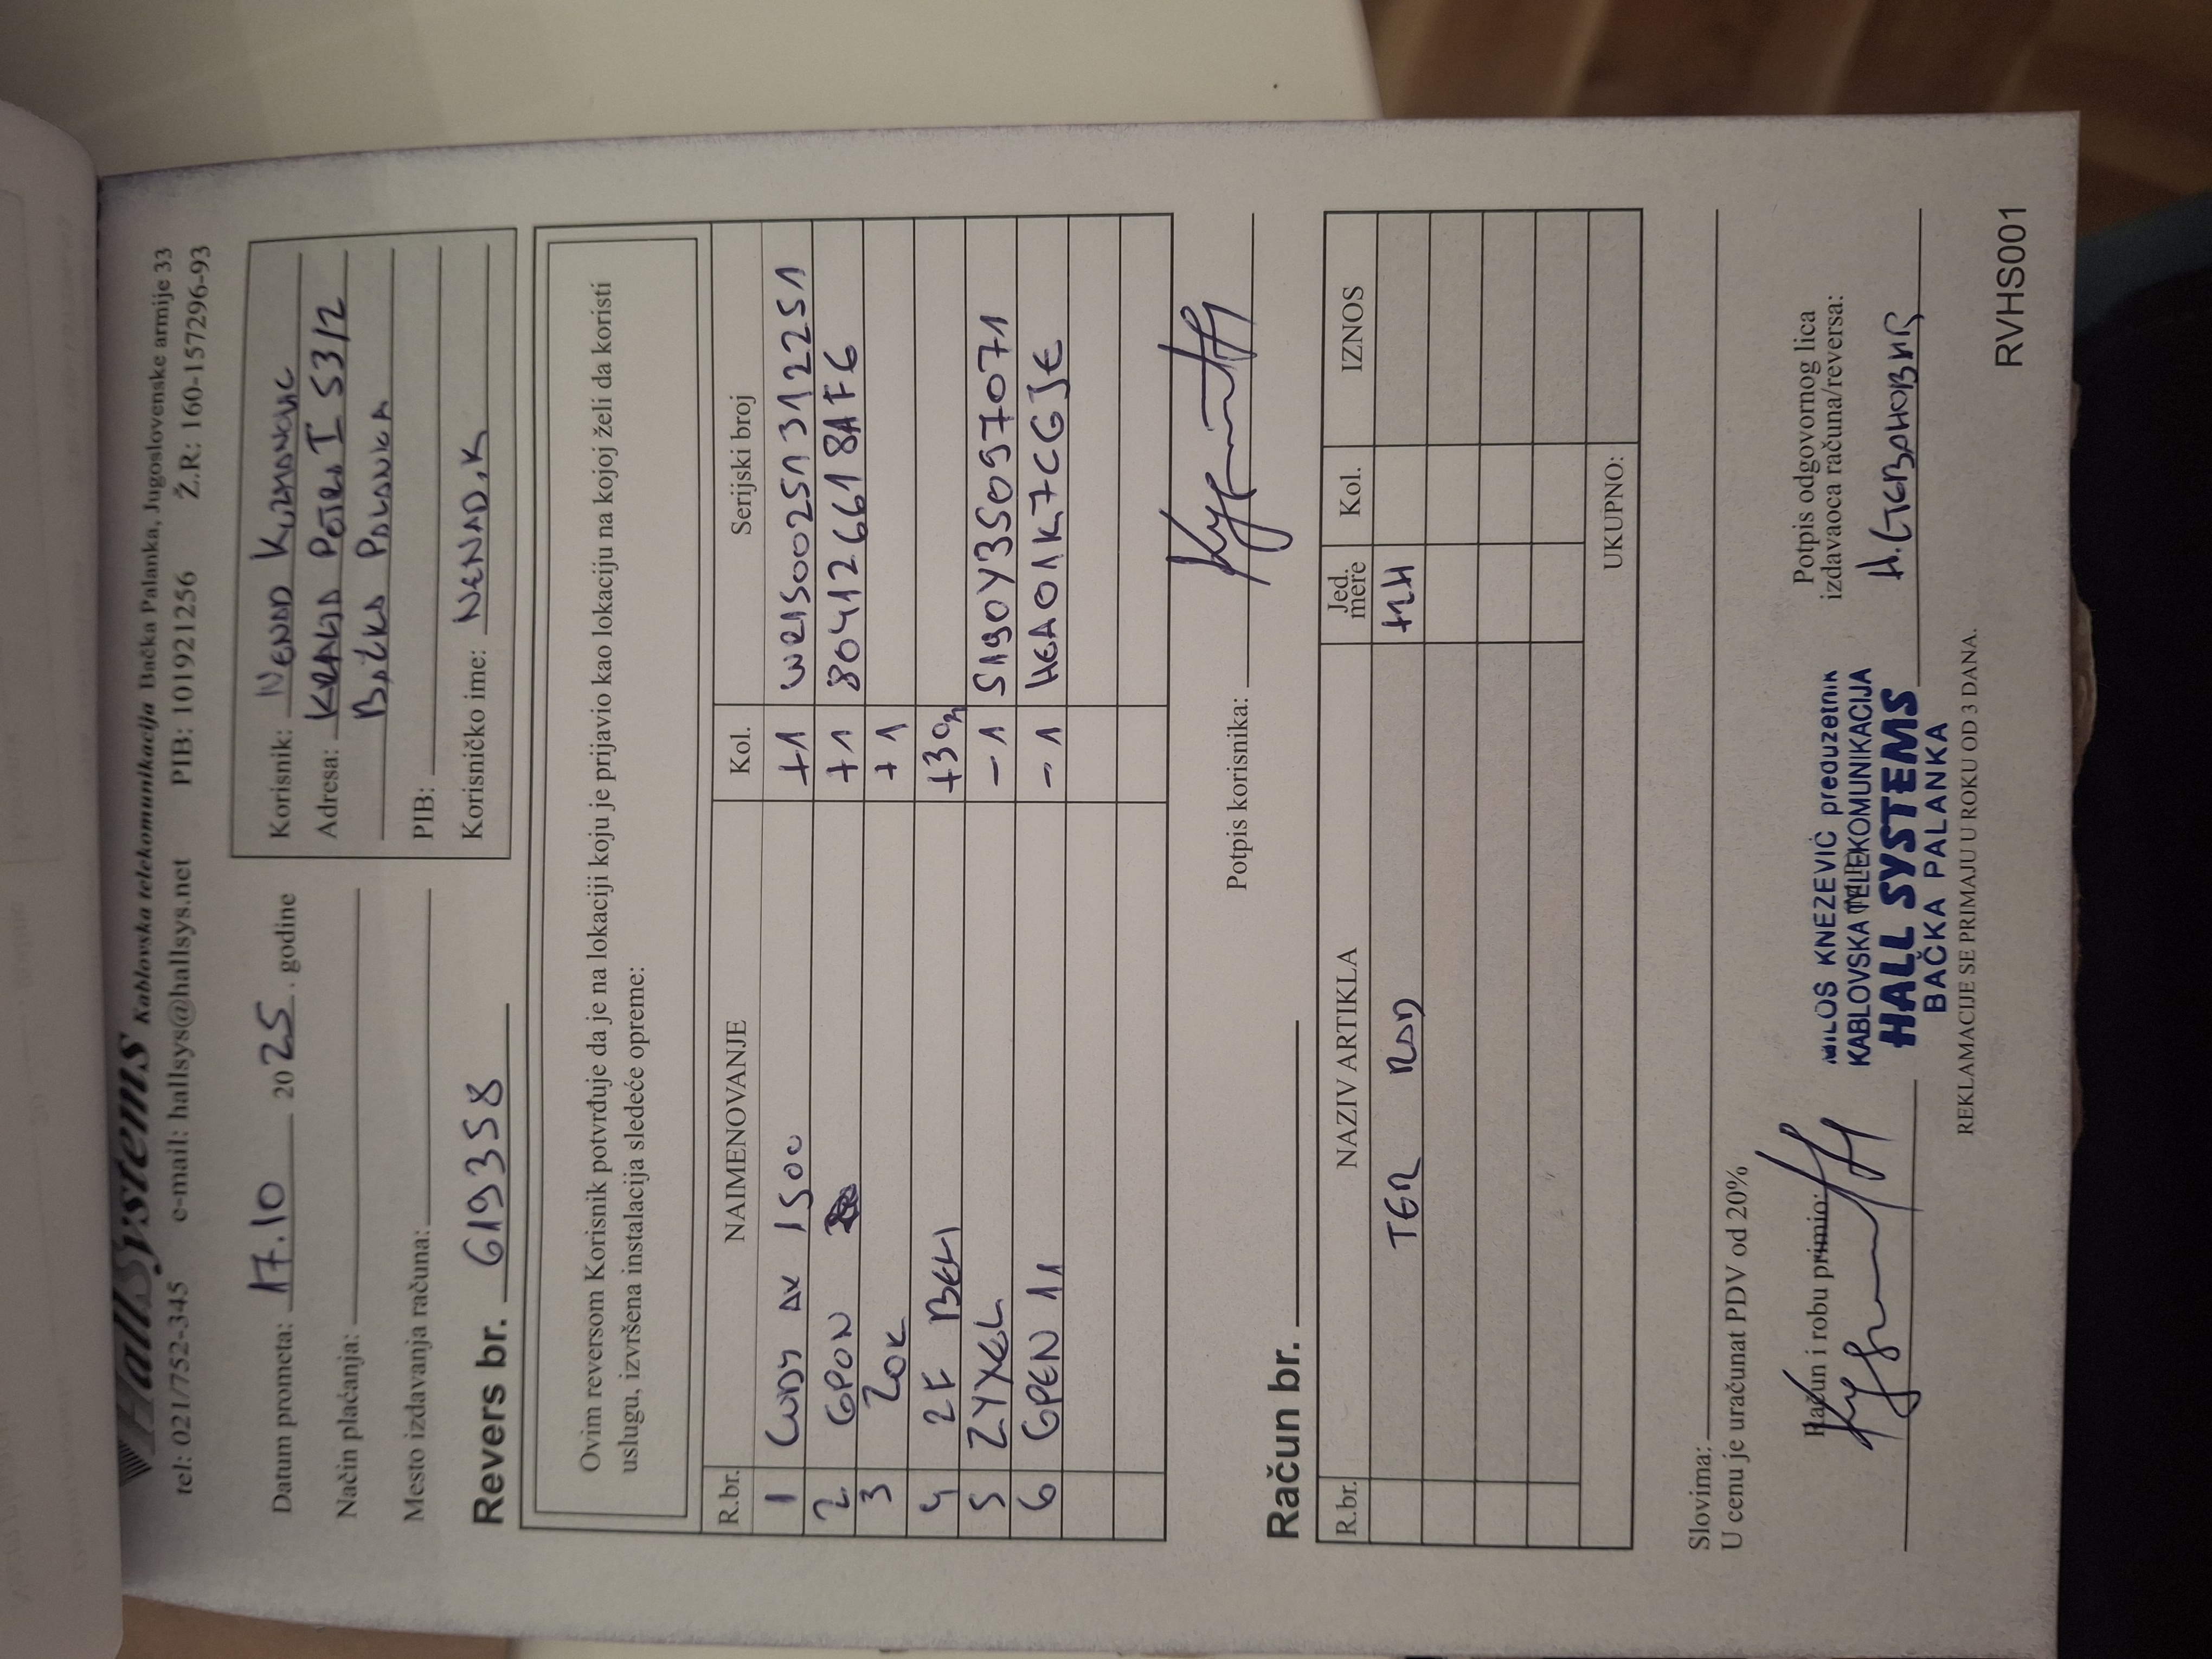 HallSystems Kablovska telekomunikacija Bačka Palanka, Jugoslovenske armije 33
tel: 021/752-345 e-mail: hallsys@hallsys.net PIB: 101921256 Ž.R: 160-157296-93
Datum prometa: 17.10 2025. godine
Način plaćanja:
Mesto izdavanja računa:
Korisnik: NENAD KUZMANOVIC
Adresa: KRALJA PETRA I 53/2
BAČKA PALANKA
PIB:
Korisničko ime: NENAD.K
Revers br. 619358
Ovim reversom Korisnik potvrđuje da je na lokaciji koju je prijavio kao lokaciju na kojoj želi da koristi
uslugu, izvršena instalacija sledeće opreme:
R.br. NAIMENOVANJE Kol. Serijski broj
1 CUDY AX 1500 +1 WR1500251312251
2 GPON +1 804126618AF6
3 ZOK +1
4 2F BELI
5 ZYXEL -1 S190Y35097071
6 GPEN 11 -1
Potpis korisnika:
Račun br.
R.br. NAZIV ARTIKLA Jed. mere Kol. IZNOS
TER RAD
UKUPNO:
Slovima:
U cenu je uračunat PDV od 20%
Račun i robu primio:
MILOŠ KNEZEVIĆ preduzetnik
KABLOVSKA TELEKOMUNIKACIJA
HALL SYSTEMS
BAČKA PALANKA
Potpis odgovornog lica
izdavaoca računa/reversa:
REKLAMACIJE SE PRIMAJU U ROKU OD 3 DANA.
RVHS001